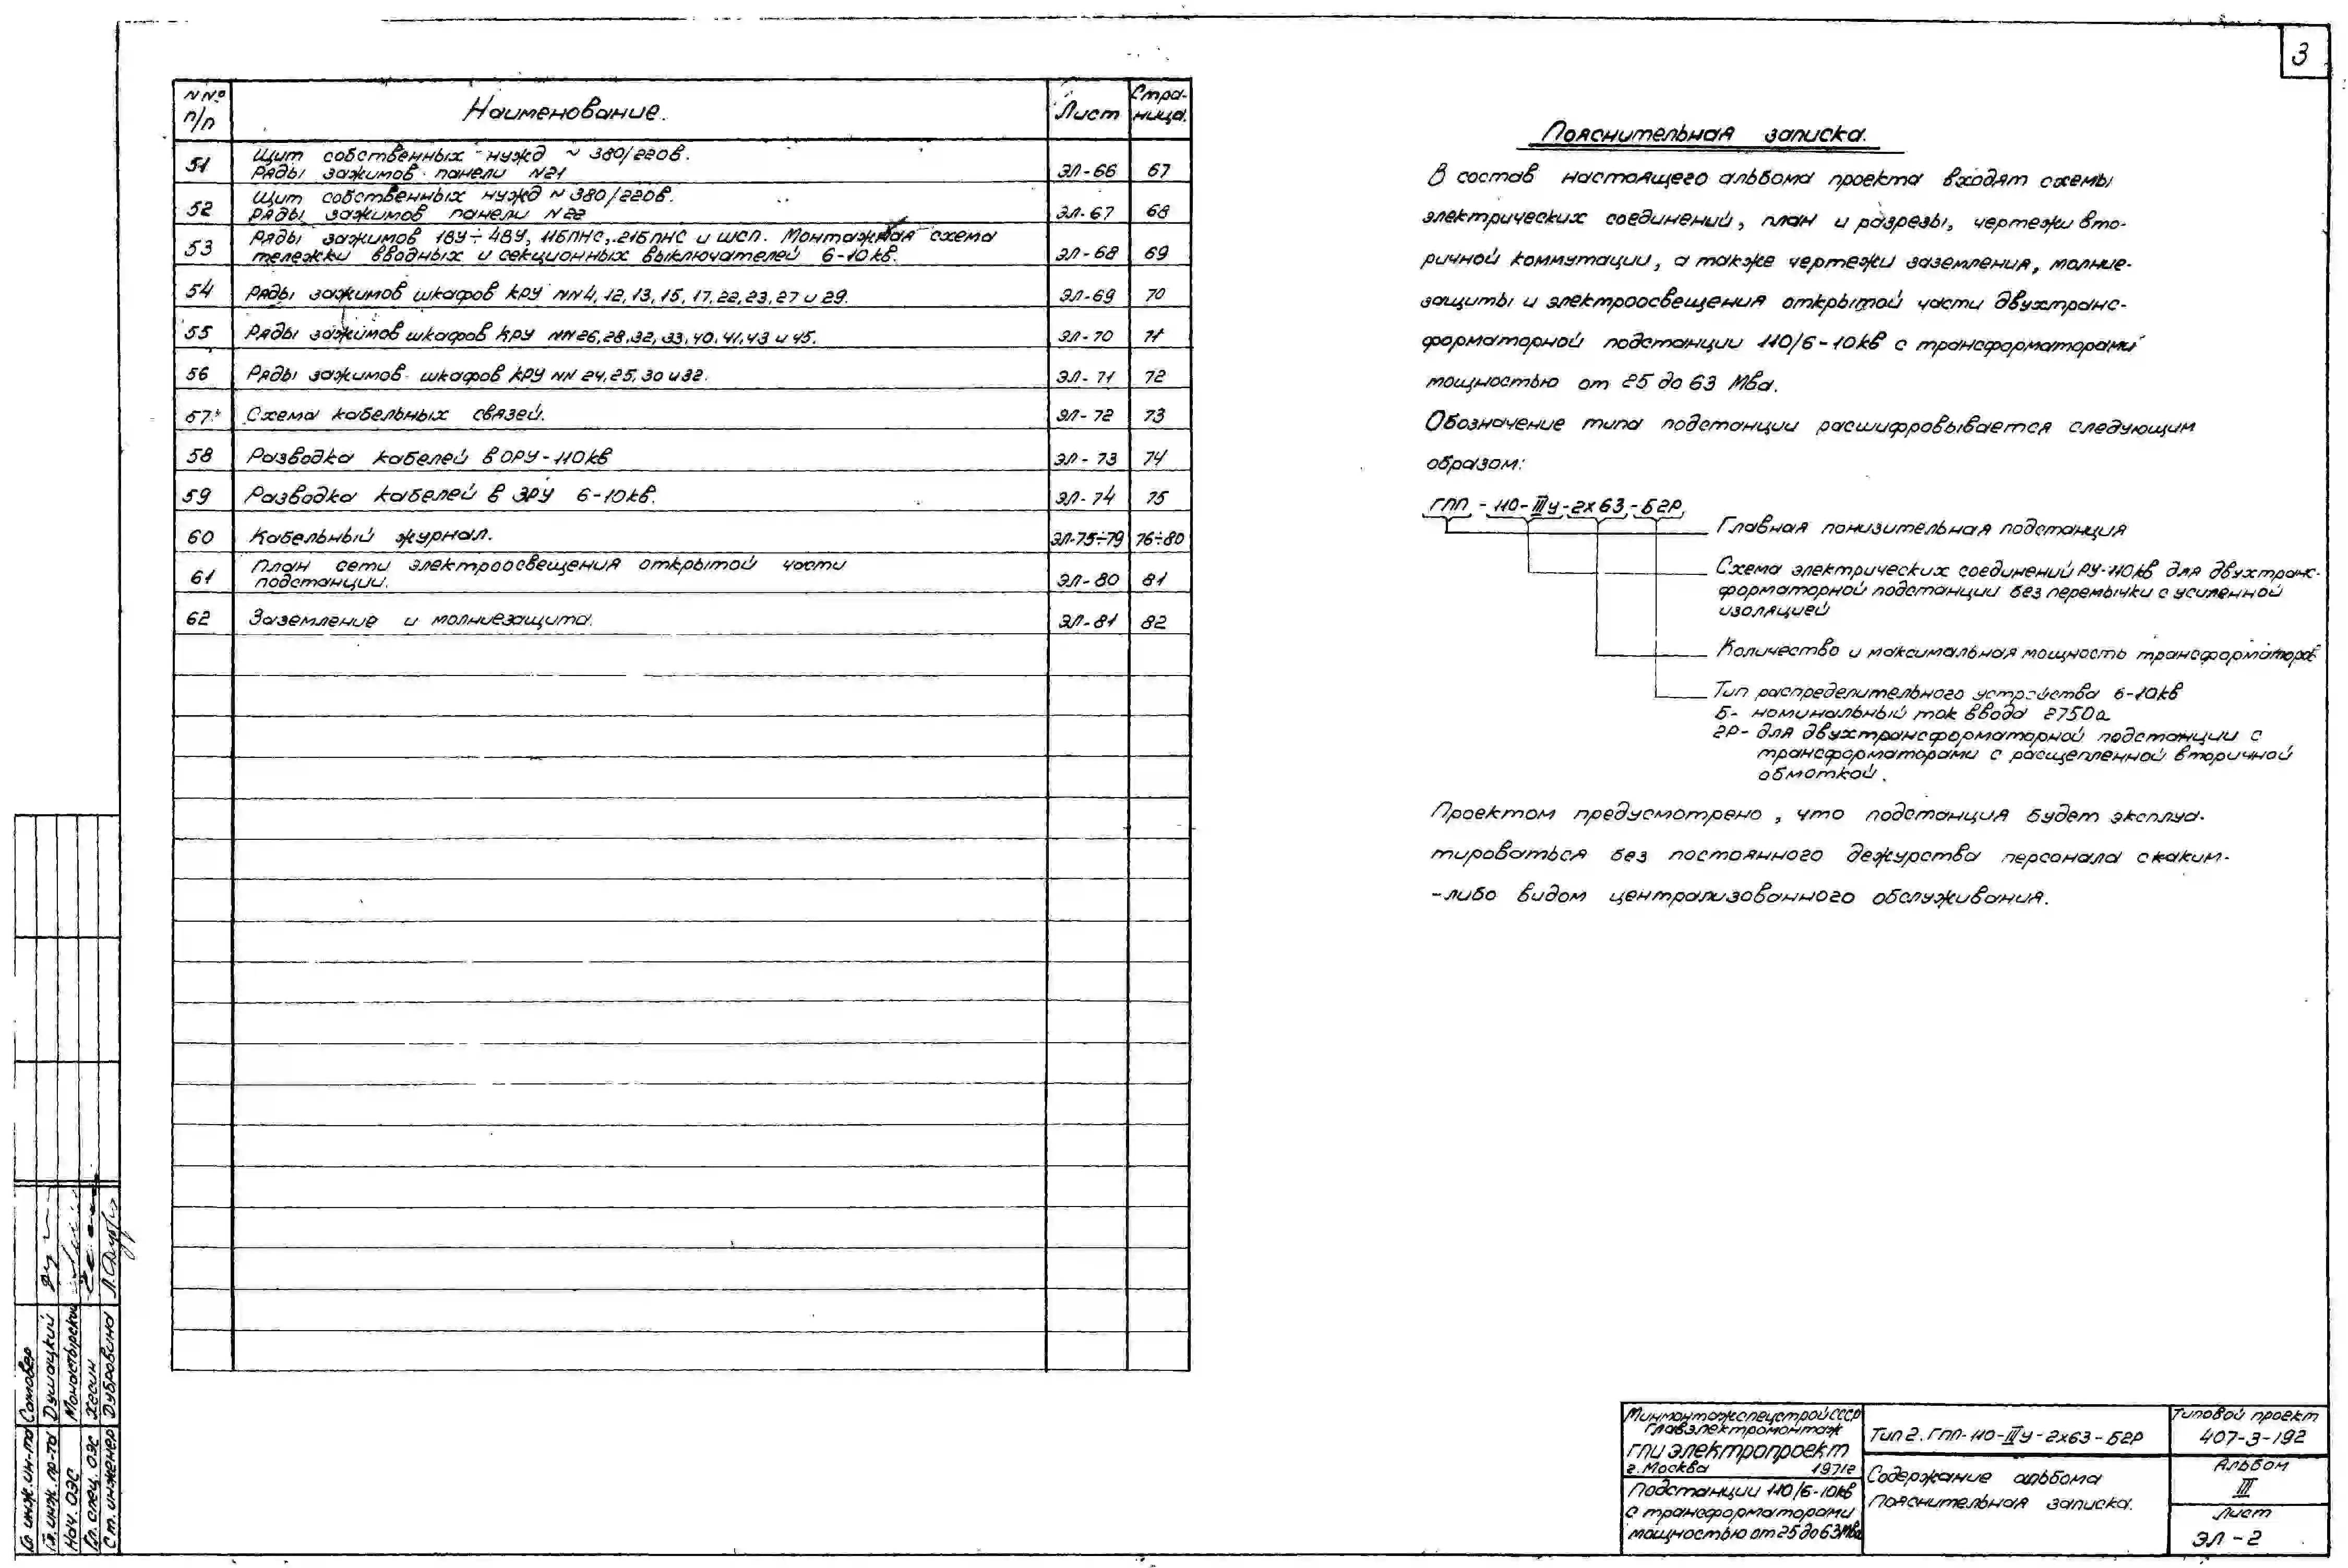 3
NN° п/п Наименование. Лист Стра-ница.
51 Щит собственных нужд ~ 380/220в.
Ряды зажимов панели N21 ЭЛ-66 67
52 Щит собственных нужд ~ 380/220в.
Ряды зажимов панели N22 ЭЛ-67 68
53 Ряды зажимов 1ВУ÷4ВУ, 11БПНС, 21БПНС и ШСП. Монтажная схема
тележки вводных и секционных выключателей 6-10кв. ЭЛ-68 69
54 Ряды зажимов шкафов КРУ NN4,12,13,15,17,22,23,27 и 29. ЭЛ-69 70
55 Ряды зажимов шкафов КРУ NN26,28,32,33,40,41,43 и 45. ЭЛ-70 71
56 Ряды зажимов шкафов КРУ NN 24,25,30 и 32. ЭЛ-71 72
57. Схема кабельных связей. ЭЛ-72 73
58 Разводка кабелей в ОРУ-110кв ЭЛ-73 74
59 Разводка кабелей в ЗРУ 6-10кв. ЭЛ-74 75
60 Кабельный журнал. ЭЛ-75÷79 76÷80
61 План сети электроосвещения открытой части
подстанции. ЭЛ-80 81
62 Заземление и молниезащита. ЭЛ-81 82
Пояснительная записка.
В состав настоящего альбома проекта входят схемы
электрических соединений, план и разрезы, чертежи вто-
ричной коммутации, а также чертежи заземления, молние-
защиты и электроосвещения открытой части двухтранс-
форматорной подстанции 110/6-10кв с трансформаторами
мощностью от 25 до 63 Мва.
Обозначение типа подстанции расшифровывается следующим
образом:
ГПП-110-IIIу-2х63-Б2Р
Главная понизительная подстанция
Схема электрических соединений РУ-110кв для двухтранс-
форматорной подстанции без перемычки с усиленной
изоляцией
Количество и максимальная мощность трансформаторов
Тип распределительного устройства 6-10кв
Б- номинальный ток ввода 2750а
2Р- для двухтрансформаторной подстанции с
трансформаторами с расщепленной вторичной
обмоткой.
Проектом предусмотрено, что подстанция будет эксплуа-
тироваться без постоянного дежурства персонала с каким-
-либо видом централизованного обслуживания.
Гл. инж. ин-та Сатовер
Гл. инж. пр-та Душацкий
Нач. ОЭС Монастырский
Гл. спец. ОЭС Хесин
Ст. инженер Дубровина
Минмонтажспецстрой СССР
Главэлектромонтаж
ГПИ Электропроект
г. Москва 1971г
Подстанции 110/6-10кв
с трансформаторами
мощностью от 25 до 63Мва
Тип 2. ГПП-110-IIIу-2х63-Б2Р
Содержание альбома
Пояснительная записка.
Типовой проект
407-3-192
Альбом
III
Лист
ЭЛ-2